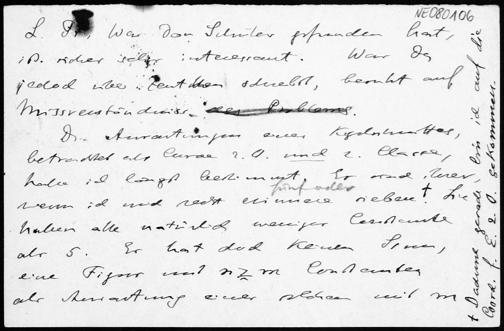 NE080106
L. Fr., Was Dan Schüler gefunden hat,
ist sicher sehr interessant. Was Du
jedoch über schreibst, beruht auf
Missverständniss. des Problems.
Die Ausartungen eines Kegelschnittes,
betrachtet als Curve 2. O. und 2. Classe,
habe ich längst bestimmt. Es sind hier,
wenn ich mich recht erinnere sieben. † Sie
fünf oder
haben alle natürlich weniger Constante
als 5. Es hat doch keinen Sinn,
eine Figur mit n ≥ m Constanten
als Ausartung einer solchen mit m
† gerade bin ich auf die
f. E. 2. O. gekommen.